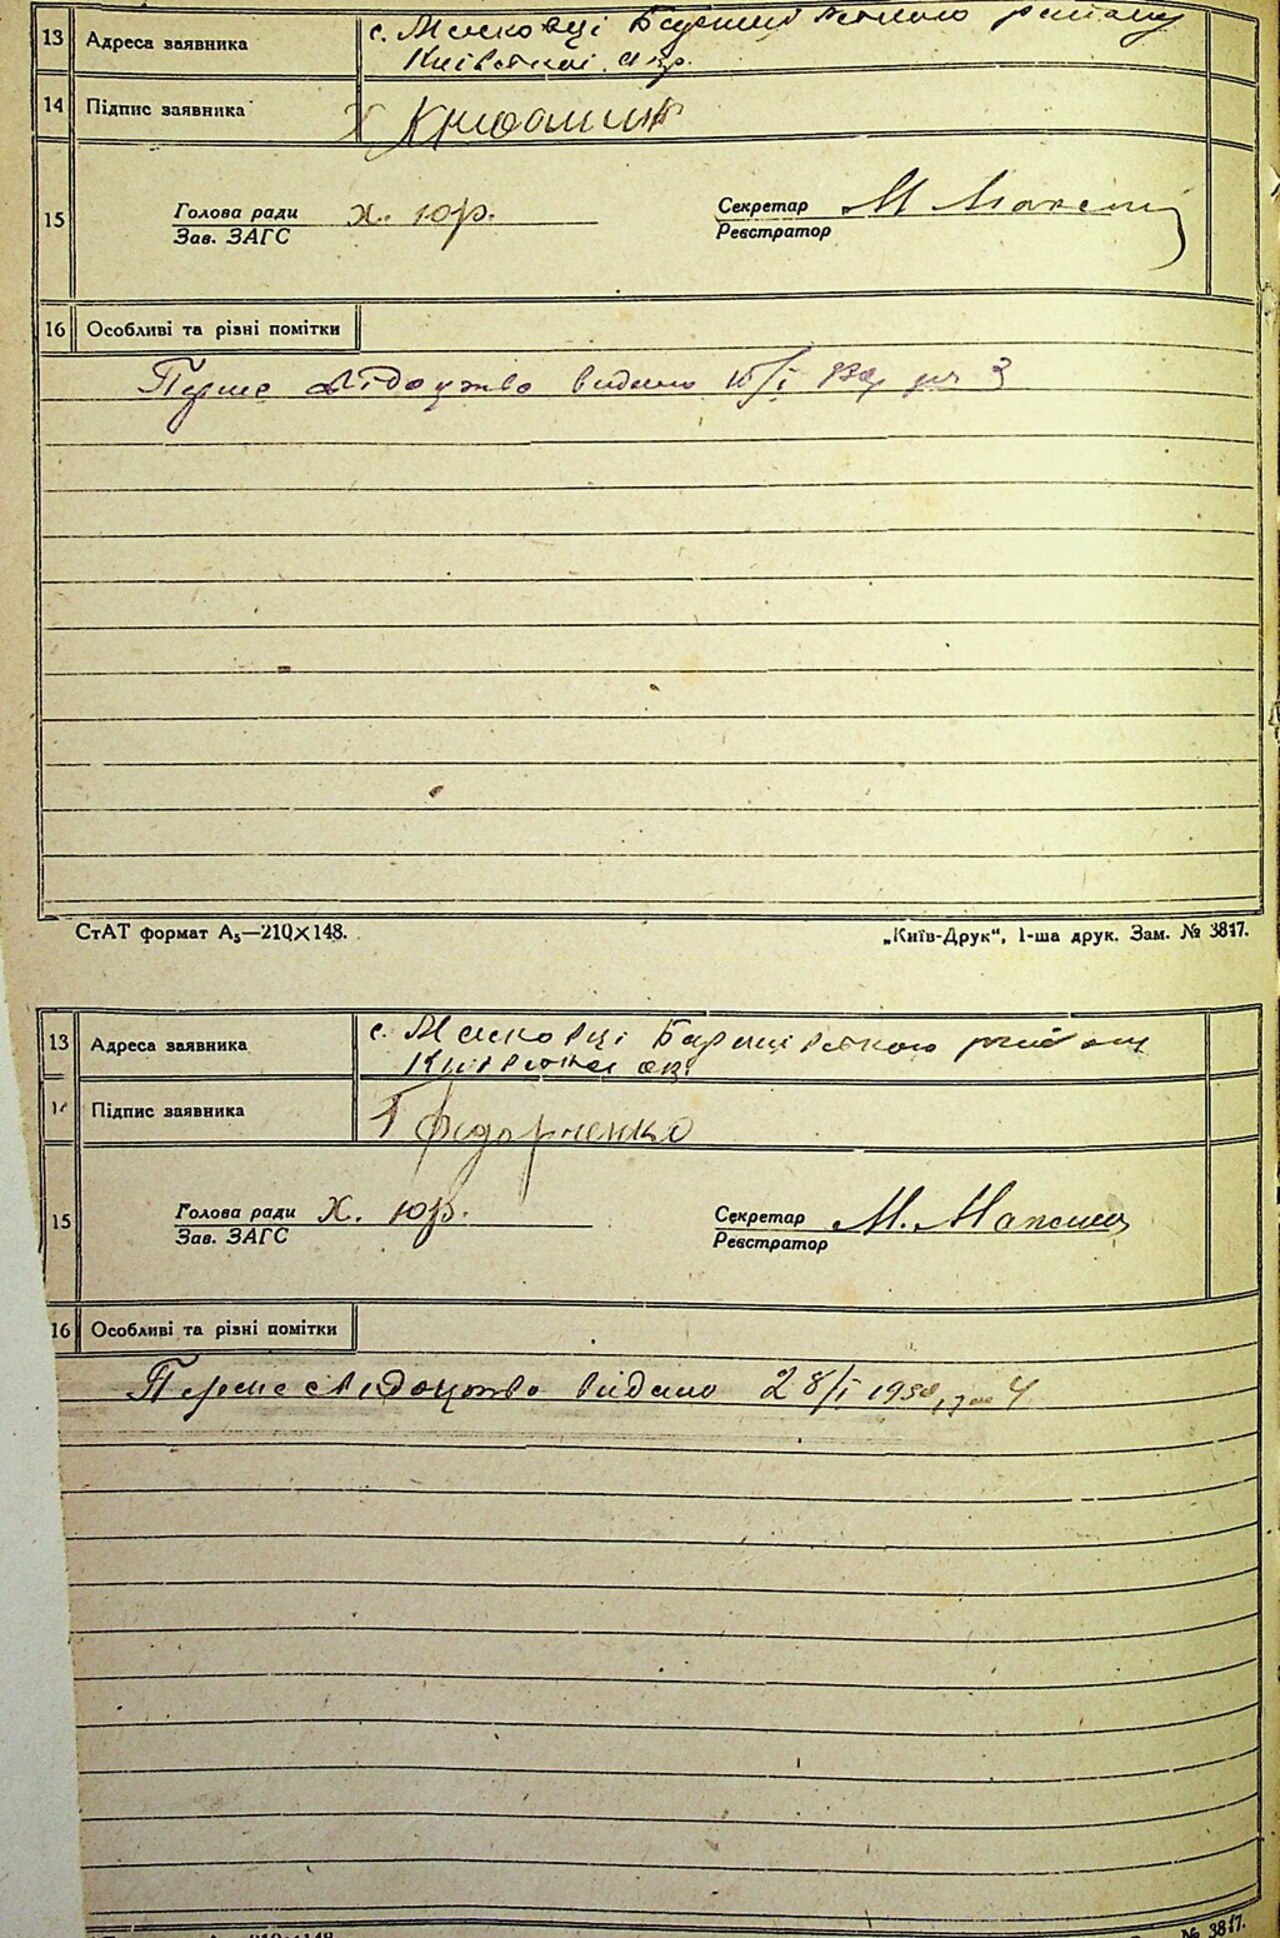 13 Адреса заявника с. Масковці Баришівського району
Київської окр.
14 Підпис заявника Х
15 Голова ради Х. Юр. Секретар М
Зав. ЗАГС Реєстратор
16 Особливі та різні помітки
Перше свідоцтво видано 3
СтАТ формат А₅—210×148. „Київ-Друк“, 1-ша друк. Зам. № 3817.
13 Адреса заявника с. Масковці Баришівського району
Київської окр.
14 Підпис заявника Федорченко
15 Голова ради Х. Юр. Секретар М.
Зав. ЗАГС Реєстратор
16 Особливі та різні помітки
Перше свідоцтво видано 28/I 1930 4
210×148 № 3817.